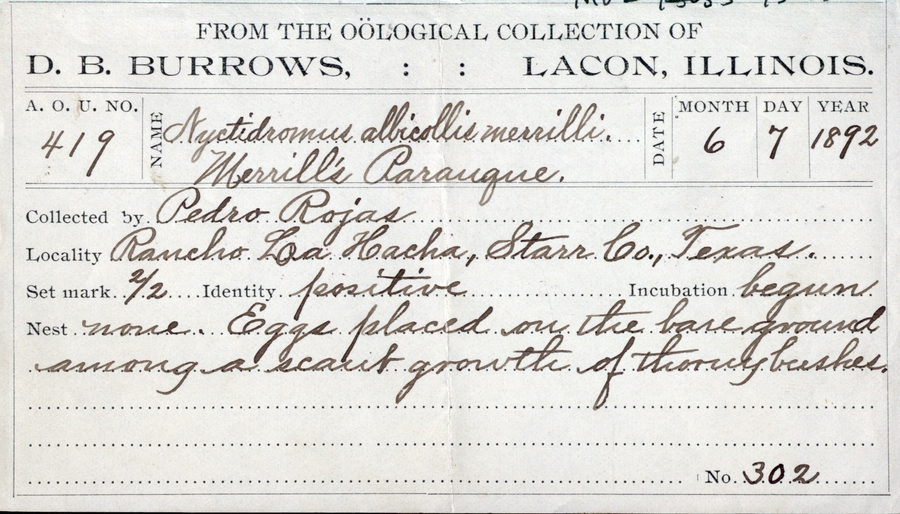 FROM THE OÖLOGICAL COLLECTION OF
D. B. BURROWS, : : LACON, ILLINOIS.
A. O. U. NO. NAME DATE MONTH DAY YEAR
419 Nyctidromus albicollis merrilli. 6 7 1892
Merrill's Parauque.
Collected by Pedro Rojas
Locality Rancho La Hacha, Starr Co., Texas.
Set mark 2/2 Identity positive Incubation begun
Nest none. Eggs placed on the bare ground
among a scant growth of thorny bushes.
No. 302